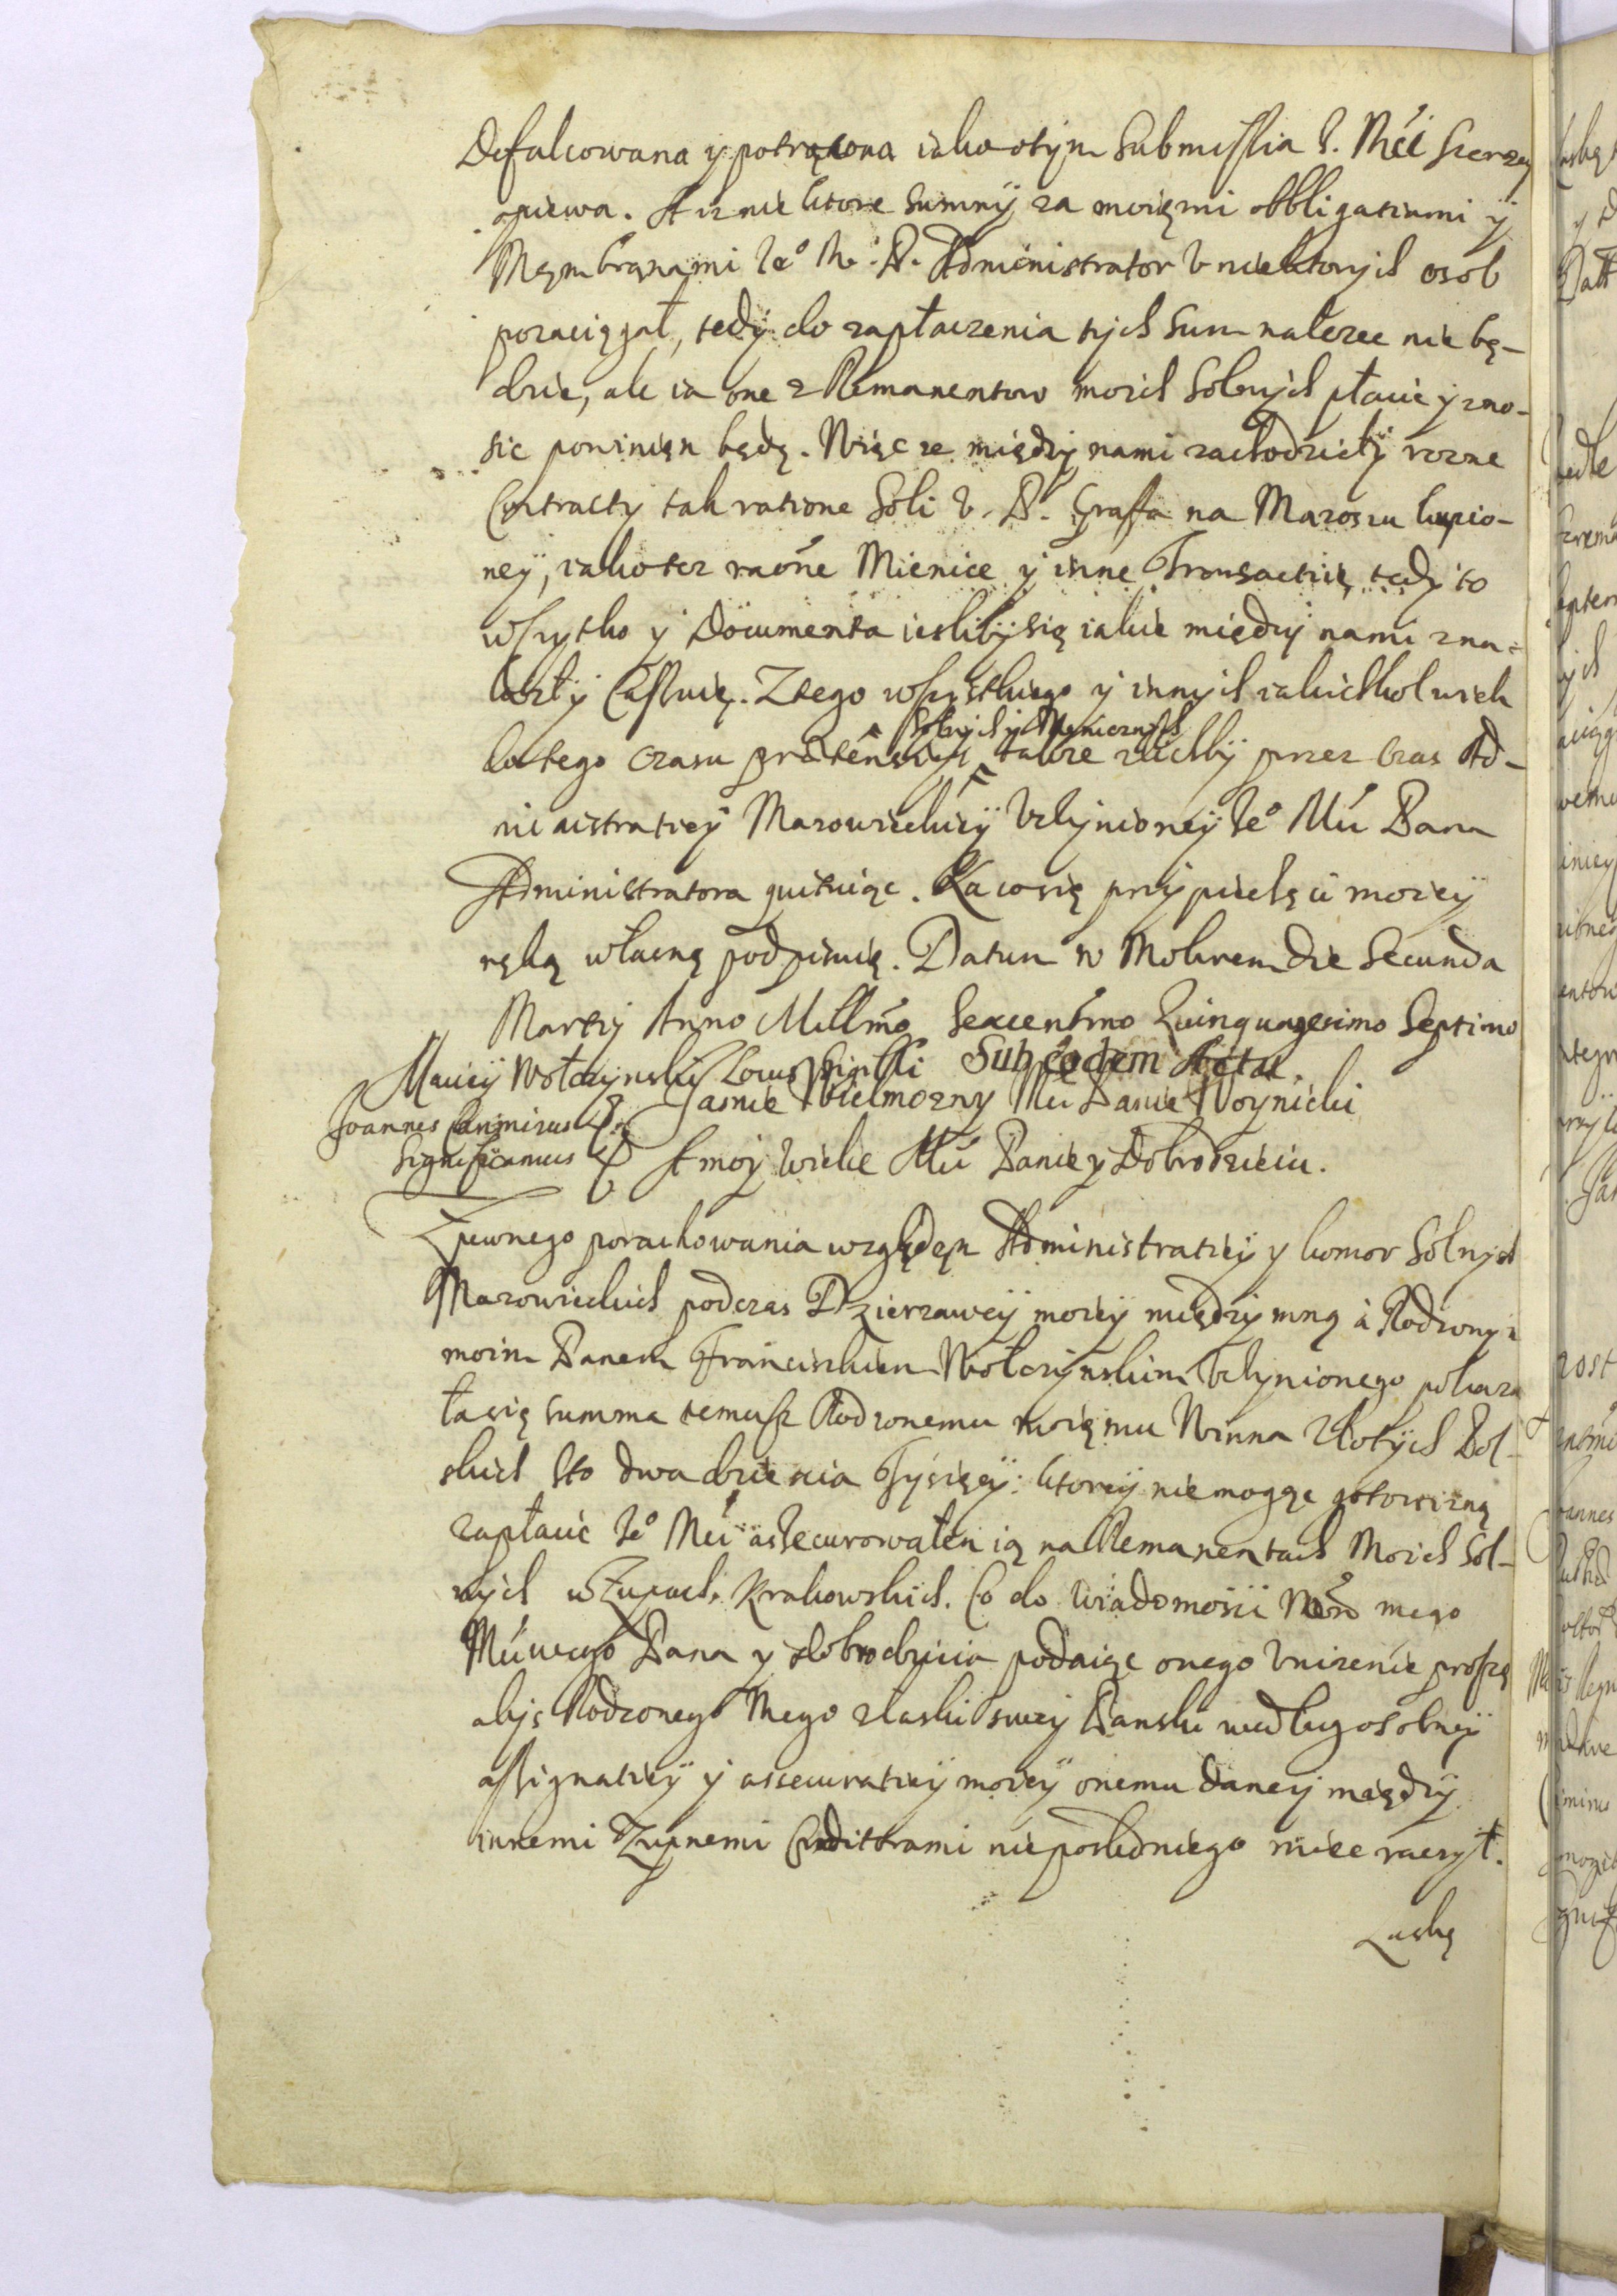 Defalcowana y potrącona iako otÿm Submissia J. Mći szerzey
opiewa. A iz nie ktore Summÿ za moięmi obbligatiami ÿ
Męmbranami Je° M. P. Administrator v niektorÿch osob
pozaciągał, tedÿ do zapłaczenia tÿch Sum nalezec nie bę-
dzie, ale ia one z Remanentow moich Solnÿch płacic y zno-
sic powinięn będę. Więc ze międzÿ nami zachodziełÿ rozne
Contracty tak ratione Soli v. P. Graffa na Maroszu kupio-
neÿ, iako tez raóne Mienice y inne Transactie, tedy to
wszytko ÿ Documenta iesliby się iakie międzÿ nami zna-
lazłÿ Cassuię. Z tego wszystkiego ÿ innych iakichkolwiek
Solnych y Męnicznych
do tego czasu prætensiÿ, także liczbÿ przez czas Ad-
ministratieÿ Mazowieckieÿ vczÿnioneÿ Je° Mći Pana
Administratora quituiąc. Na co się przÿ pieczęci moieÿ
ręką własną podpisuię. Datum w Mokrem die Secunda
Martij Anno Millmo Sexcentmo Quinquagesimo Septimo
Macieÿ Wołczynskÿ Locus Sigilli Sub eodem Actu.
Joannes Casimirus Jasnie Wielmozny Mći Panie Woynicki
Significamus A moÿ wielce Mći Panie y Dobrodzieiu.
Z pewnego porachowania względęm Administratieÿ y komor Solnych
Mazowieckich podczas Dzierzaweÿ moieÿ międzÿ mną à Rodzonym
moim Panem Franciszkiem Wołczÿnskim vczÿnionego pokaza
ła się summa temusz Rodzonemu moięmu Winna Złotÿch Pol-
skich sto dwadziescia Tÿsięcÿ: ktoreÿ nie mogąc gotowizną
zapłacic Je° Mći assecurowałem ią na Remanentach Moich Sol-
nÿch w Zupach Krakowskich. Co do wiadomosci Wm° mego
Mćiwego Pana y dobrodzieia podaiąc onego vnizenie proszę
abÿs Rodzonego Mego z łaski sweÿ Panskieÿ według osobneÿ
assignatieÿ ÿ assecuratieÿ moieÿ onemu daneÿ międzÿ
innemi Zupnemi Creditorami nie posledniego miec raczył.
Łaskę